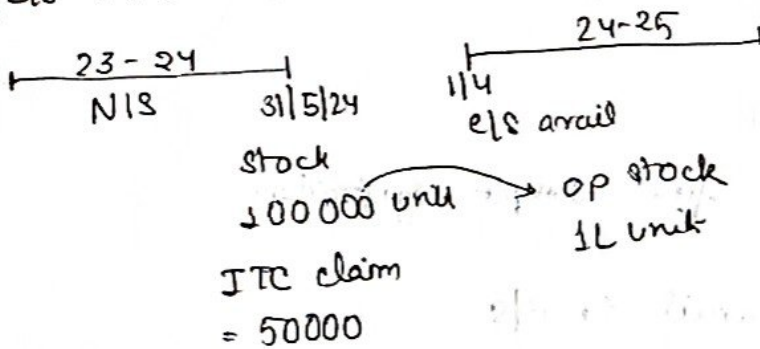 23-24
24-25
N|S
31|5|24
1|4
c|s avail
Stock
100000 unit
OP stock
1L unit
ITC claim
= 50000